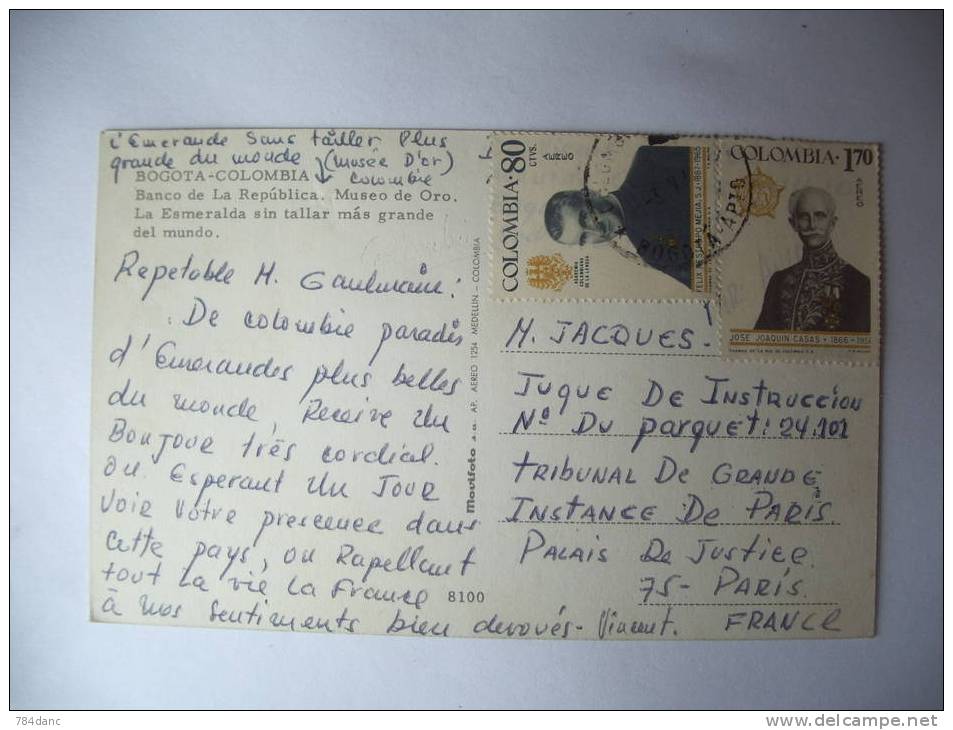 l'Emeraude Sans tailler Plus
grande du monde (Musée D'or)
colombie
BOGOTA-COLOMBIA
Banco de La República. Museo de Oro.
La Esmeralda sin tallar más grande
del mundo.
Rapetable M.
De colombie paradis
d'Emeraudes plus belles
du monde, Receive Un
Bonjour très cordial.
ou Esperant Un Jour
Voir Votre prescence dans
cette pays, ou Rapellant
tout La vie La France
à nos Sentiments bien devoués- Vincent.
8100
Movifoto s.a. AP. AEREO 1254 MEDELLIN - COLOMBIA
COLOMBIA·80
CTVS.
AEREO
ACADEMIA
COLOMBIANA
DE LA LENGUA
FELIX RESTREPO MEJIA, S.J.·1887-1965
COLOMBIA·1.70
AEREO
JOSE JOAQUIN CASAS · 1866 - 1951
BOGOTA
M. JACQUES.
JUQUE DE INSTRUCCION
Nº DU parquet: 24.101
TRIBUNAL DE GRANDE
INSTANCE DE PARIS.
PALAIS De JUSTICE.
75- PARIS.
FRANCE
784danc
www.delcampe.net